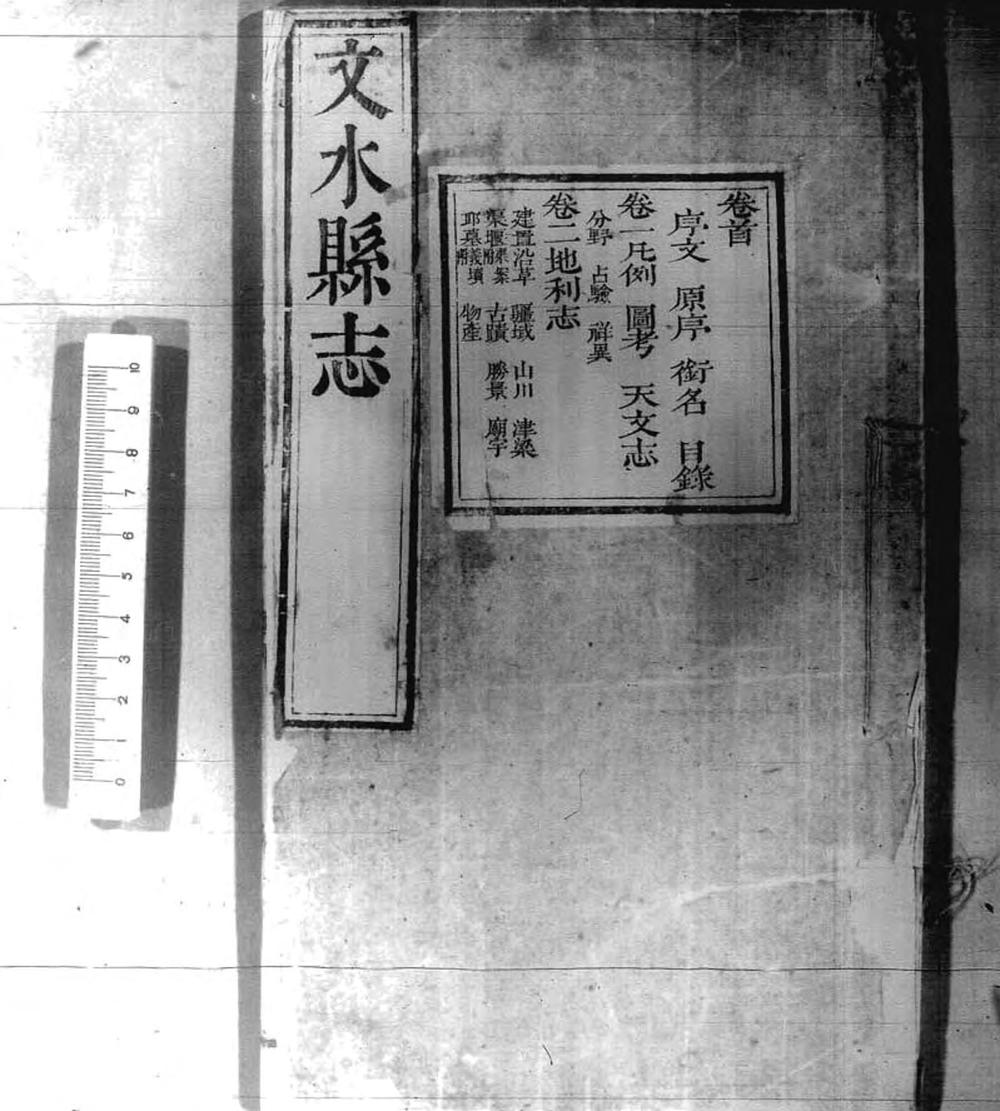 文水縣志
卷首
序文 原序 銜名 目錄
卷一凡例 圖考 天文志
分野 占驗 祥異
卷二地利志
建置沿革 疆域 山川 津梁
渠堰 古蹟 勝景 廟宇
邱墓 義塚 物產
10
9
8
7
6
5
4
3
2
1
0